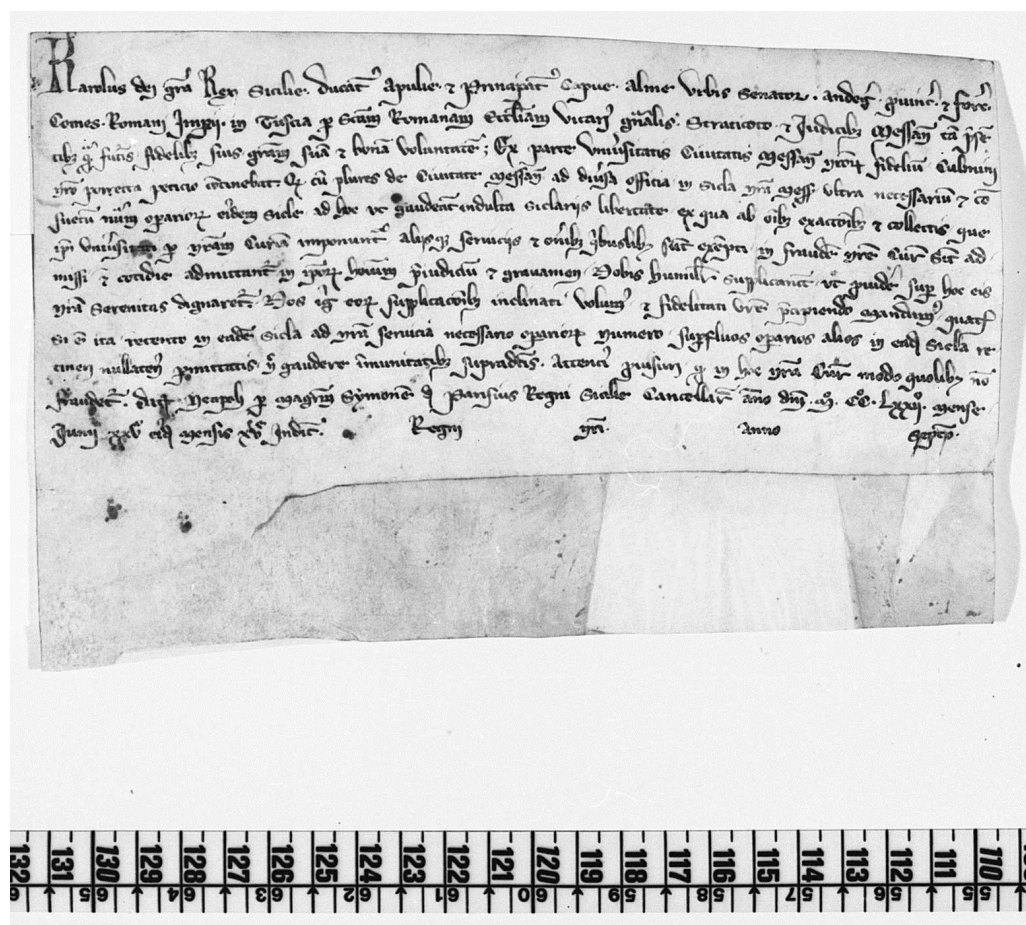 Karolus dei gra Rex Sicilie. Ducat Apulie. et Principat Capue. alme Urbis Senator. andeg. pvinc. et forc.
Comes. Romani Impii. in Tuscia p Scam Romanam Ecctiam Vicari gnalis. Straticoto et Iudicibz Messan ta psen
tibz q futis fidelibz suis gram sua et bona voluntate; Ex parte Vniusitatis Ciuitatis Messan nror fidelium Culmini
nro porrecta peticio continebat. Q cu plures de Ciuitate Messan ad diusa officia in Sicla nra Mess. ultra necessariu et co
suetu num operarior eidem Sicle ad hoc ut gaudeat indulta Siclariis libertate ex qua ab oibz exactoibz et collectis que
ipi Vniusitati p nram Curia imponuntr aliisqz seruiciis et omibz qibuslibz sut exepti in fraude nre Cur sit ad
missi et cotidie admittantr in ipor hoium piudiciu et grauamen. Nobis humilr supplicarut. ut puidere sup hoc eis
nra Serenitas dignaretr. Nos ig eor supplicacoibz inclinati volum et fidelitati vre pcipiendo mandamus quaten
si e ita retento in eade Sicla ad nra seruicia necessario operarior numero supfluos operarios alios in ead Sicla re
tineri nullaten pmittatis. n gaudere imunitatibz supradcis. Attenti puisuri q in hoc nra Cur modo quolibz no
fraudetr. Dat Neapoli p Magrm Symone d Parisius Regni Sicilie Cancellar Ano dni. M. CC. LXXII. Mense
Iunii XXV eid mensis XV Indic. Regni nri Anno Septio.
132 131 130 129 128 127 126 125 124 123 122 121 120 119 118 117 116 115 114 113 112 111 110